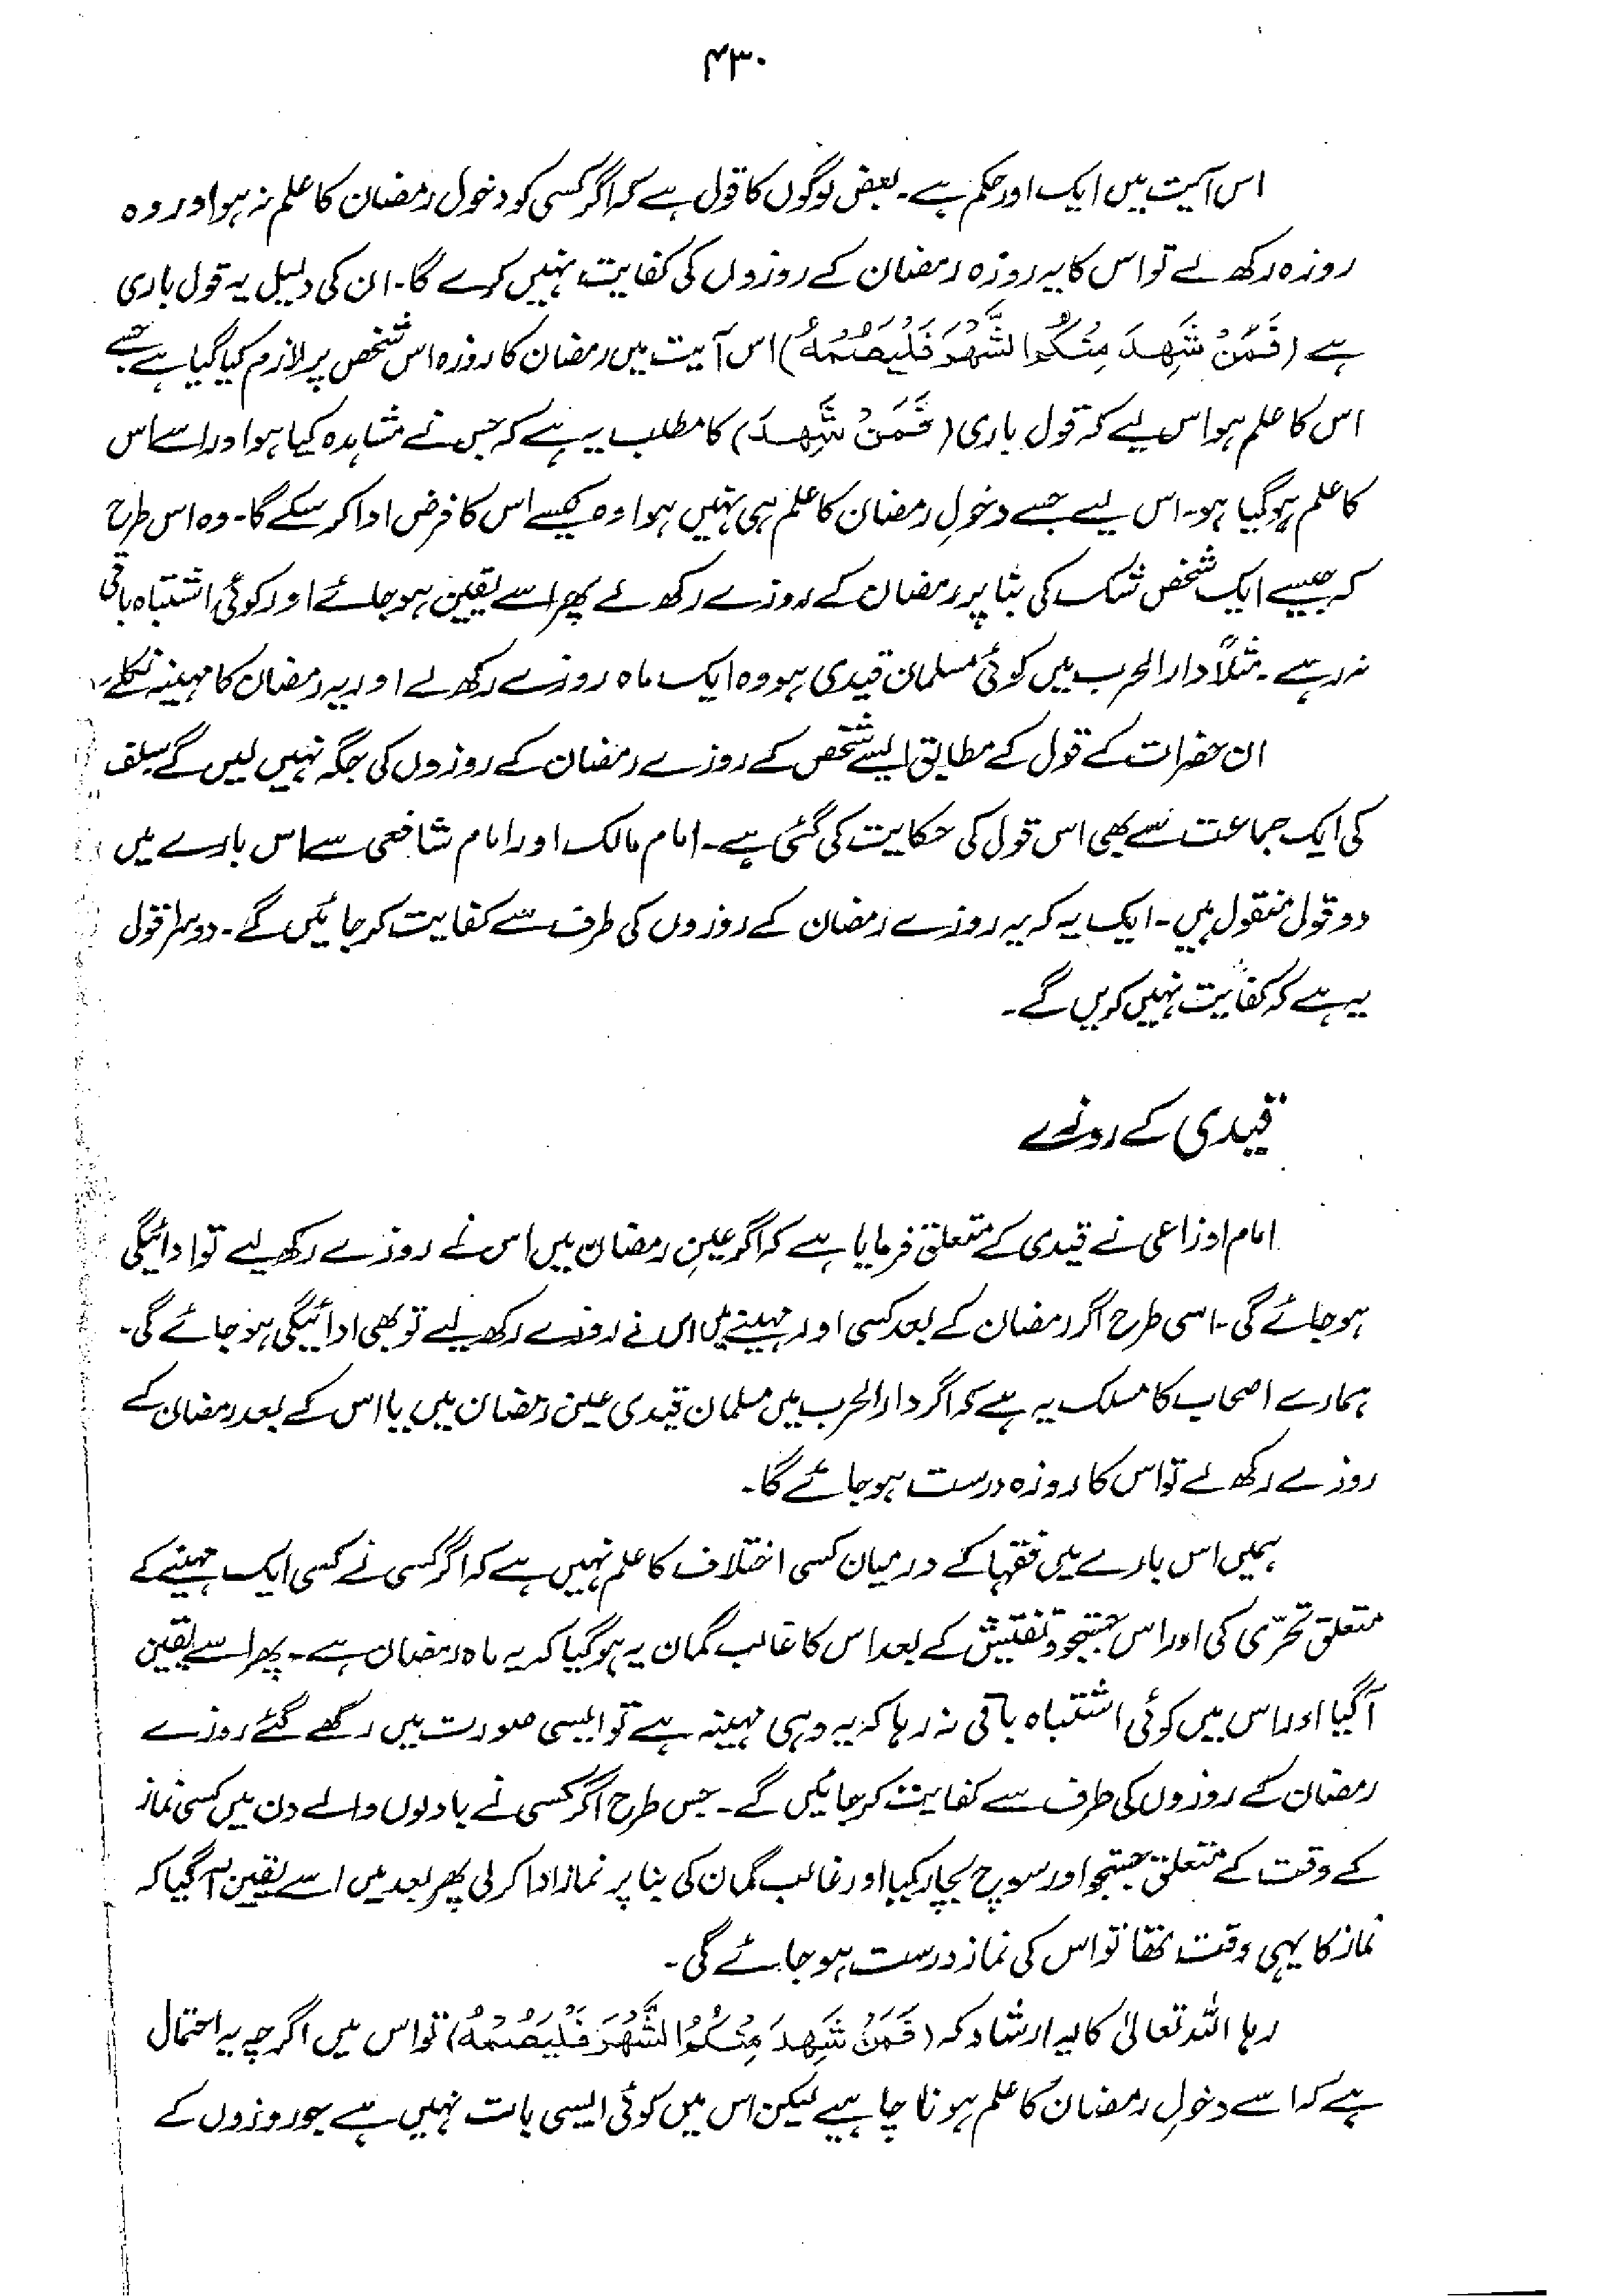 ۴۳۰
اس آیت میں ایک اور حکم ہے۔ بعض لوگوں کا قول ہے کہ اگر کسی کو دخول رمضان کا علم نہ ہو اور وہ
روزہ رکھ لے تو اس کا یہ روزہ رمضان کے روزوں کی کفایت نہیں کرے گا۔ ان کی دلیل یہ قول باری
ہے (فَمَنْ شَهِدَ مِنْكُمُ الشَّهْرَ فَلْيَصُمْهُ) اس آیت میں رمضان کا روزہ اس شخص پر لازم کیا گیا ہے جسے
اس کا علم ہو اس لیے کہ قول باری (فَمَنْ شَهِدَ) کا مطلب یہ ہے کہ جس نے مشاہدہ کیا ہو اور اسے اس
کا علم ہو گیا ہو۔ اس لیے جسے دخولِ رمضان کا علم ہی نہیں ہوا وہ کیسے اس کا فرض ادا کر سکے گا۔ وہ اس طرح
کہ جیسے ایک شخص شک کی بنا پر رمضان کے روزے رکھ لے پھر اسے یقین ہو جائے اور کوئی اشتباہ باقی
نہ رہے۔ مثلاً دار الحرب میں کوئی مسلمان قیدی ہو وہ ایک ماہ روزے رکھ لے اور یہ رمضان کا مہینہ نکلے۔
ان حضرات کے قول کے مطابق ایسے شخص کے روزے رمضان کے روزوں کی جگہ نہیں لیں گے سلف
کی ایک جماعت سے بھی اس قول کی حکایت کی گئی ہے۔ امام مالک اور امام شافعی سے اس بارے میں
دو قول منقول ہیں۔ ایک یہ کہ یہ روزے رمضان کے روزوں کی طرف سے کفایت کر جائیں گے۔ دوسرا قول
یہ ہے کہ کفایت نہیں کریں گے۔
قیدی کے روزے
امام اوزاعی نے قیدی کے متعلق فرمایا ہے کہ اگر عینِ رمضان میں اس نے روزے رکھ لیے تو ادائیگی
ہو جائے گی۔ اسی طرح اگر رمضان کے بعد کسی اور مہینے میں اس نے روزے رکھ لیے تو بھی ادائیگی ہو جائے گی۔
ہمارے اصحاب کا مسلک یہ ہے کہ اگر دار الحرب میں مسلمان قیدی عین رمضان میں یا اس کے بعد رمضان کے
روزے رکھ لے تو اس کا روزہ درست ہو جائے گا۔
ہمیں اس بارے میں فقہا کے درمیان کسی اختلاف کا علم نہیں ہے کہ اگر کسی نے کسی ایک مہینے کے
متعلق تحرّی کی اور اس جستجو و تفتیش کے بعد اس کا غالب گمان یہ ہو گیا کہ یہ ماہ رمضان ہے۔ پھر اسے یقین
آگیا اور اس میں کوئی اشتباہ باقی نہ رہا کہ یہ وہی مہینہ ہے تو ایسی صورت میں رکھے گئے روزے
رمضان کے روزوں کی طرف سے کفایت کر جائیں گے۔ جس طرح اگر کسی نے بادلوں والے دن میں کسی نماز
کے وقت کے متعلق جستجو اور سوچ بچار کیا اور غالب گمان کی بنا پر نماز ادا کر لی پھر بعد میں اسے یقین آ گیا کہ
نماز کا یہی وقت تھا تو اس کی نماز درست ہو جائے گی۔
رہا اللہ تعالیٰ کا یہ ارشاد کہ (فَمَنْ شَهِدَ مِنْكُمُ الشَّهْرَ فَلْيَصُمْهُ) تو اس میں اگرچہ یہ احتمال
ہے کہ اسے دخولِ رمضان کا علم ہونا چاہیے لیکن اس میں کوئی ایسی بات نہیں ہے جو روزوں کے